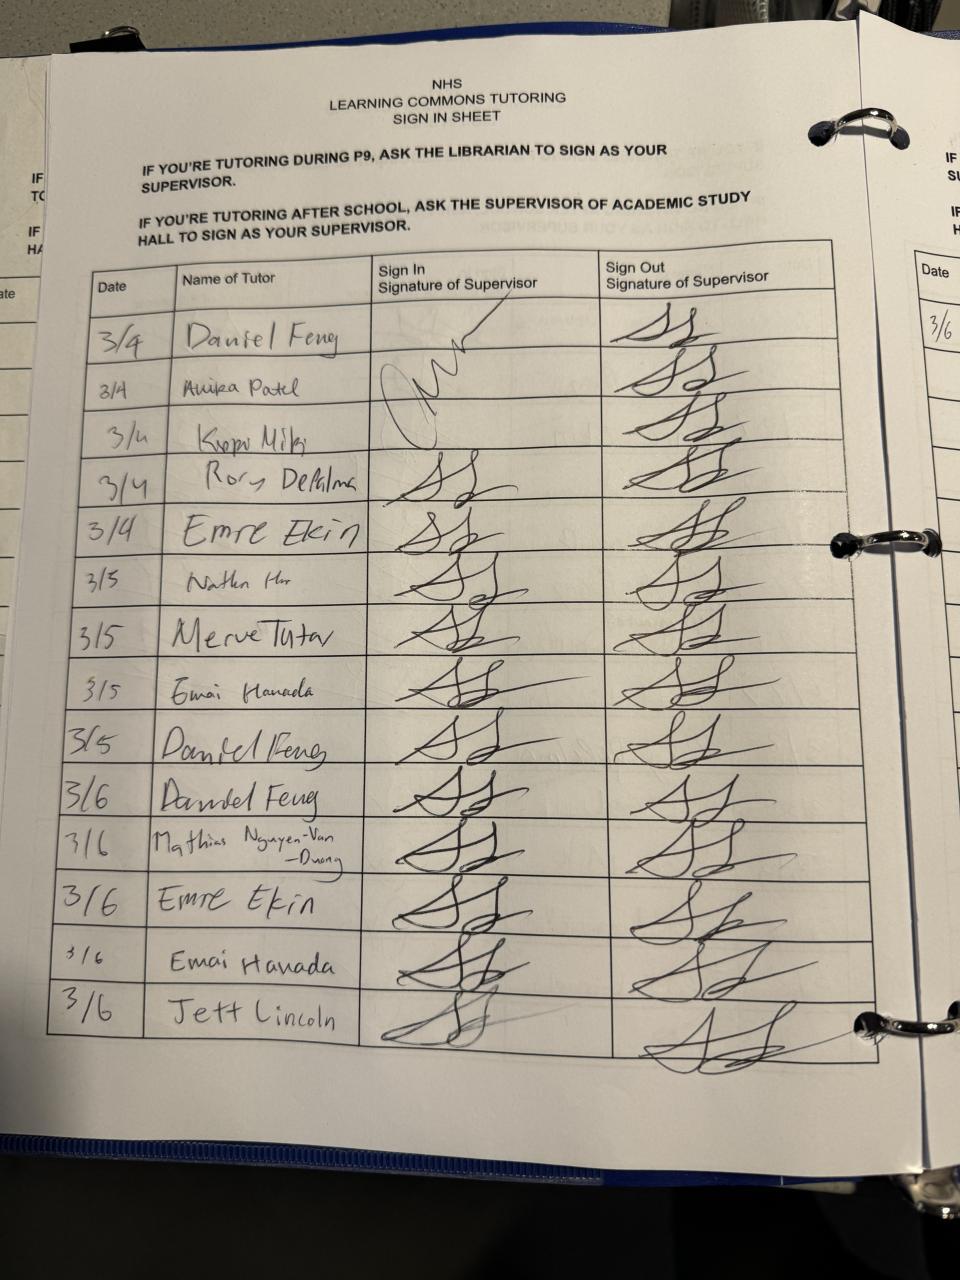 NHS
LEARNING COMMONS TUTORING
SIGN IN SHEET
IF YOU'RE TUTORING DURING P9, ASK THE LIBRARIAN TO SIGN AS YOUR
SUPERVISOR.
IF YOU'RE TUTORING AFTER SCHOOL, ASK THE SUPERVISOR OF ACADEMIC STUDY
HALL TO SIGN AS YOUR SUPERVISOR.
Date Name of Tutor Sign In Signature of Supervisor Sign Out Signature of Supervisor
3/4 Daniel Feng
3/4 Anika Patel
3/4 Miki
3/4 Rory DePalma
3/4 Emre Ekin
3/5 Nathn
3/5 Merve Tutar
3/5 Emai Hanada
3/5 Daniel Feng
3/6 Daniel Feng
3/6 Mathias Nguyen-Van
-Duong
3/6 Emre Ekin
3/6 Emai Hanada
3/6 Jett Lincoln
Date
3/6